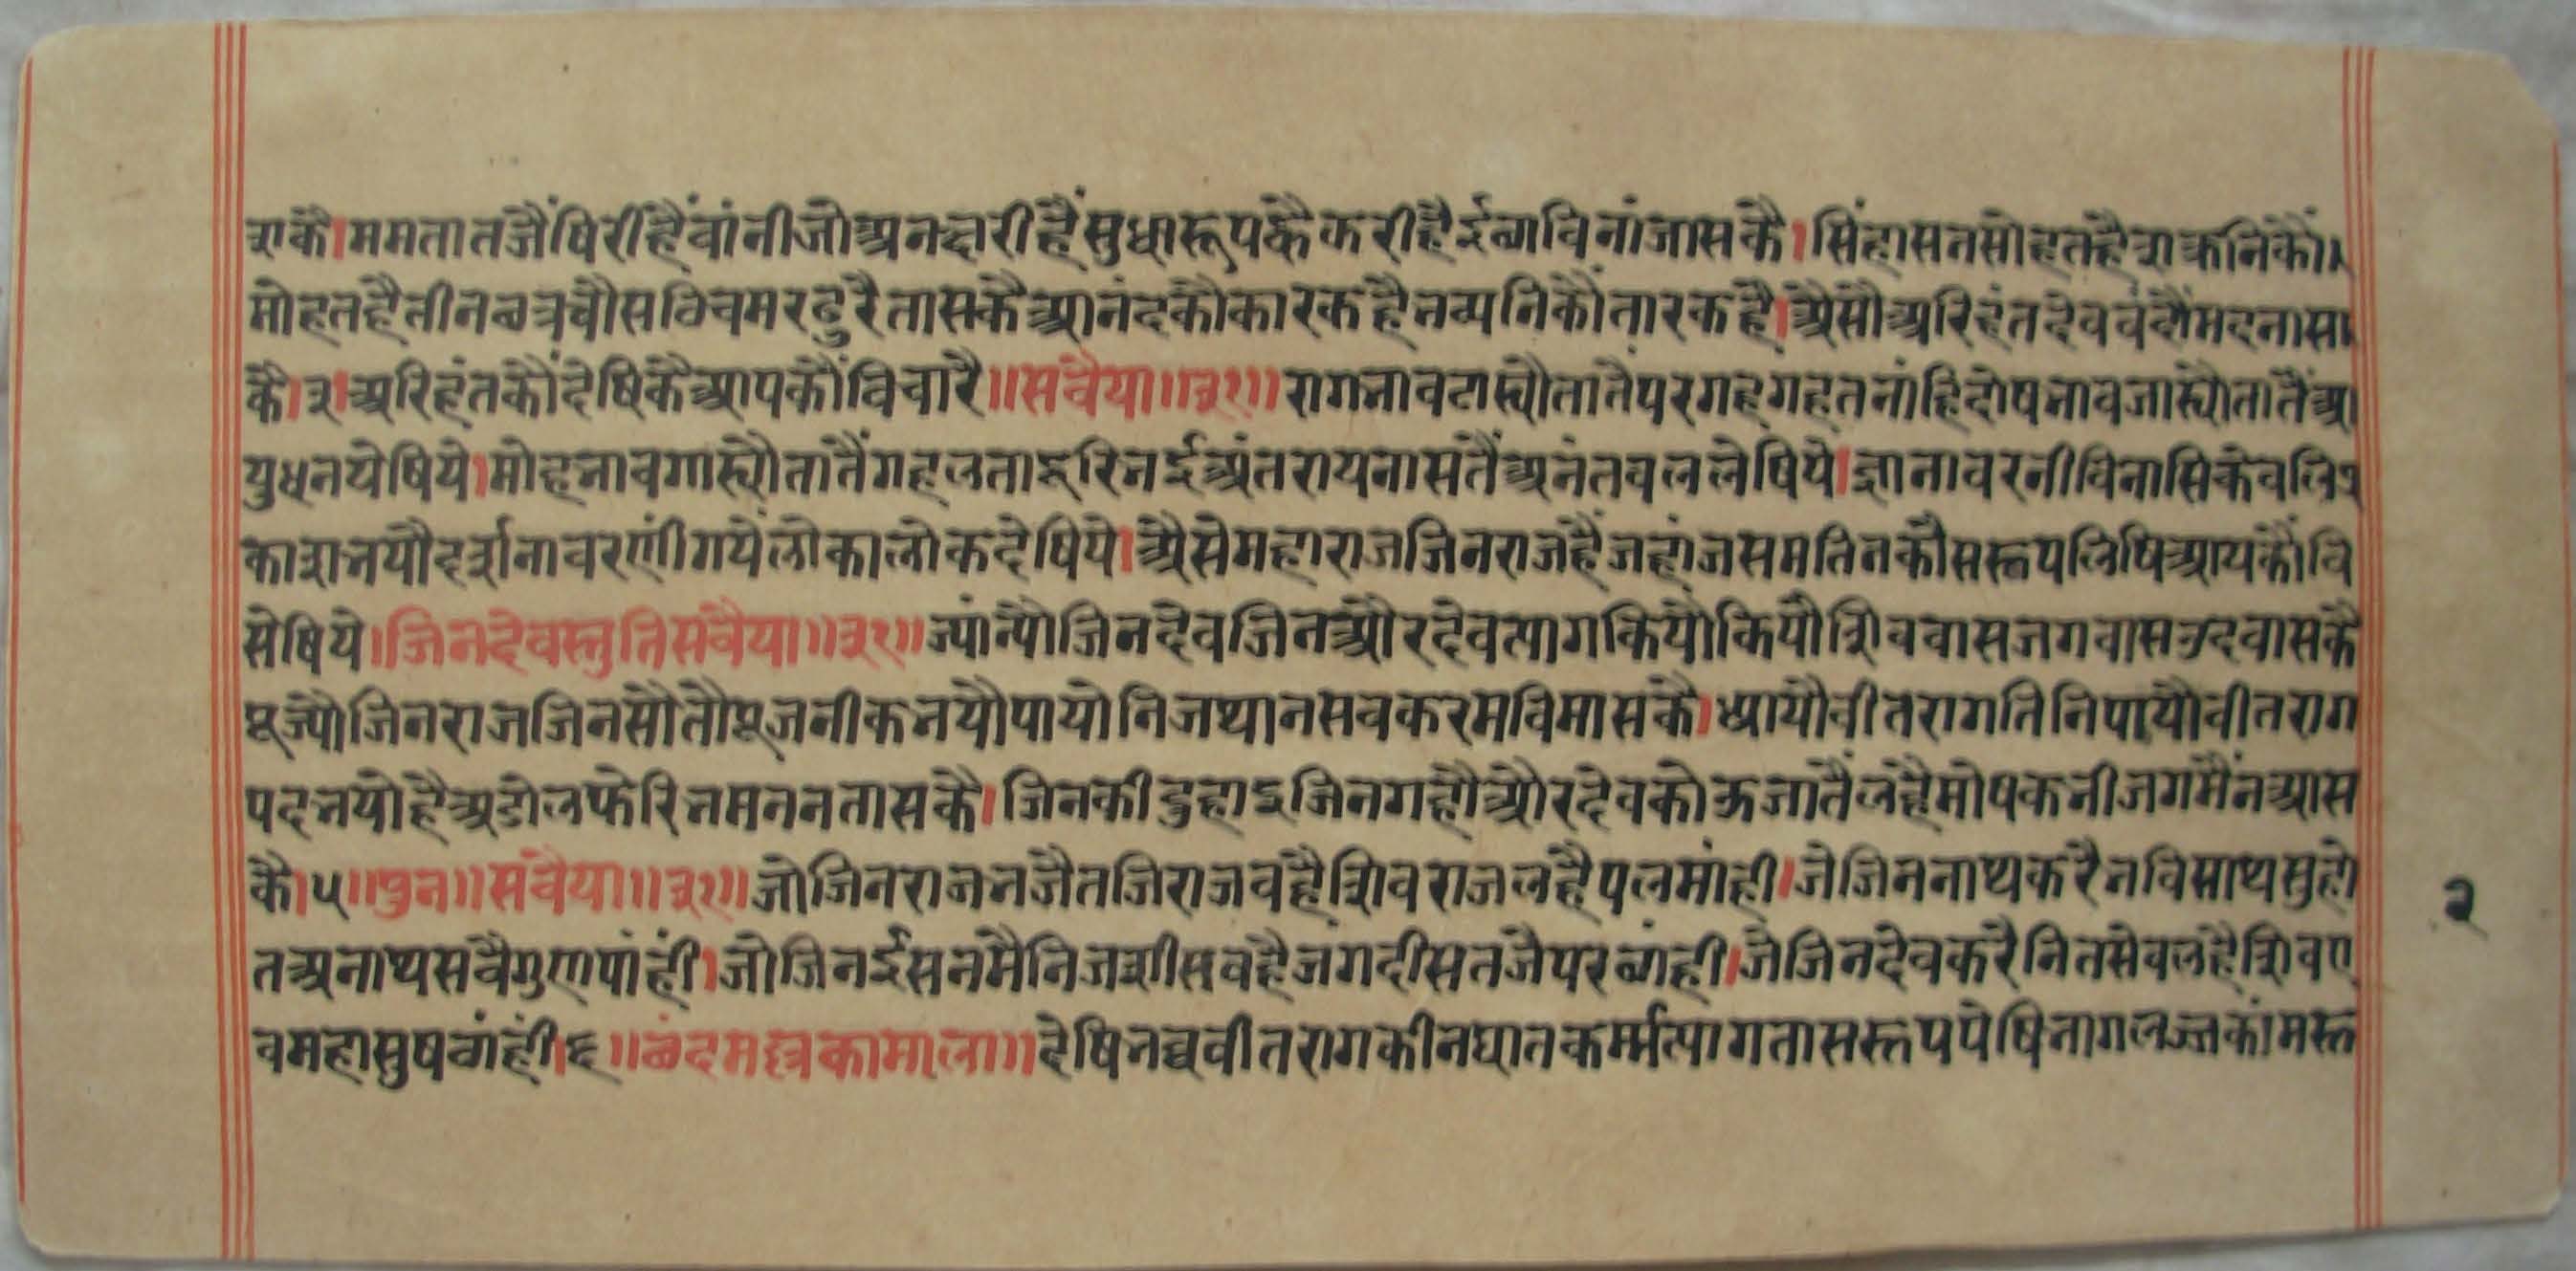 शकै।ममतातजैंषिरींहैंवांनीजोअनक्षरीहैंसुधारूपकैकरीहैईछाविनांजासकै।सिंहासनसोहतहैशक्रनिकौं।
मोहतहैतीनछत्रचौसठिचमरढुरैतासकैआनंदकौकारकहैभव्यनिकौंतारकहै।अैसौअरिहंतदेववंदौंमदनासा
कै।३।अरिहंतकौंदेषिकैआपकौंविचारै॥सवैया॥३१॥रागभावटास्यौतातैंपरगहगहतनांहिदोषभावजास्यौतातैंआ
युधनयेषिये।मोहभावगास्यौतातैंगहलताहरिनईअंतरायनासतैंअनंतवललेषिये।ज्ञानावरनीविनासिकेवलिप्र
काशभयौदर्शनावरणींगयेंलोकालोकदेषिये।अैसेमहाराजजिनराजहैंजहांजसमतितकौसरूपलिषिआयकौंवि
सेषिये।जिनदेवस्तुतिसवैया॥३१॥ज्यांन्यौजिनदेवजिनऔरदेवत्यागकियौकियौशिववासजगवासउदवासकै
पूज्यौजिनराजजिनसौतौपूजनीकभयौपायोनिजथानसवकरमविमासकै।ध्यायौवीतरागतिनिपायौवीतराग
पदभयोहैअडोलफेरिभमनभतासकै।जिनकीदुहाइजिनगहौऔरदेवकोऊजातैंलहैमोषकभीजगमैंनआस
कै।५॥पुन॥सवैया॥३१॥जोजिनराजभजैतजिराजवहैशिवराजलहैपलमांही।जेजिननाथकरैनविसाथसुहो
तअनाथसवैगुणपांहीं।जोजिनईसनमैनिजशीसवहैजगदीसतजैपरछांही।जेजिनदेवकरैनितसेवलहैशिवए
वमहासुषछांहीं।६॥छंदमत्रकामाला॥देषिभव्यवीतरागकीनघातकर्म्मत्यागतासरूपपेषिभागलज्जकांमरू